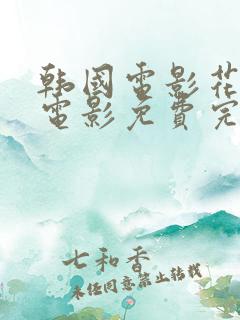 韩国电影花
电影免费完
七和香
未经同意禁止转载